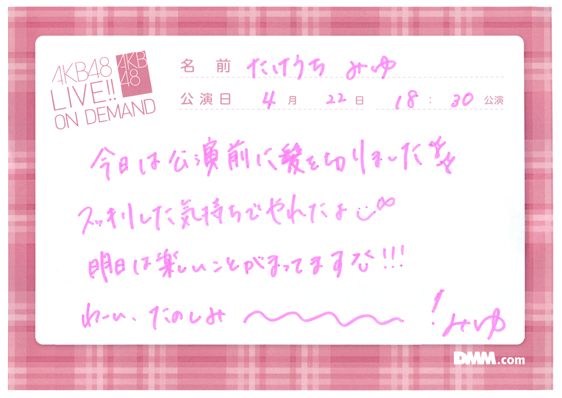 AKB48
LIVE!!
ON DEMAND
AKB
48
名前 たけうち みゆ
公演日 4月 22日 18:30 公演
今日は公演前に髪を切りました
スッキリした気持ちでやれたよ
明日は楽しいことがまってますな!!!
わーい、たのしみ〜〜〜〜!
みゆ
DMM.com